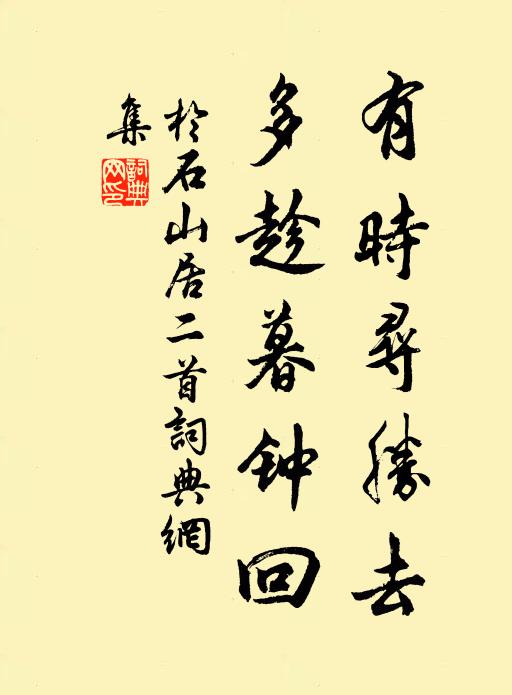 有時尋勝去
多趁暮钟回
於石山居二首詞典網
集
詞典
网印